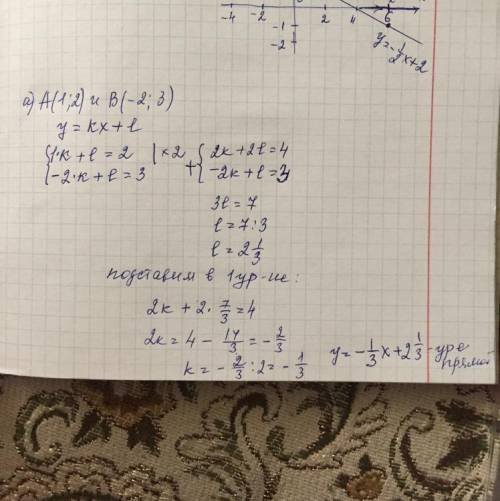 -4 -2 0 2 4 6
-1
-2
y=-1/2x+2
а) A(1;2) и B(-2; 3)
y=kx+l
{1·k+l=2 |×2 + {2k+2l=4
{-2·k+l=3 {-2k+l=3
3l=7
l=7:3
l=2 1/3
подставим в 1 ур-ие:
2k+2·7/3=4
2k=4-14/3=-2/3
k=-2/3:2=-1/3
y=-1/3x+2 1/3 - ур-е
прямой